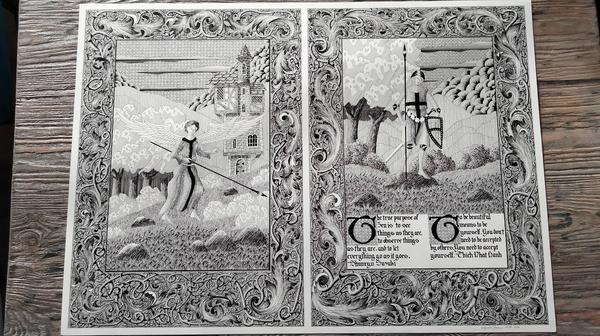 The true purpose of
Zen is to see
things as they are,
to observe things
as they are, and to let
everything go as it goes.
Shunryu Suzuki
To be beautiful
means to be
yourself. You don't
need to be accepted
by others. You need to accept
yourself. Thich Nhat Hanh